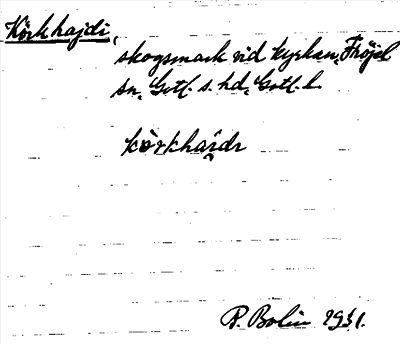 Körkhajdi,
skogsmark vid kyrkan, Fröjel
sn, Gotl. s. hd, Gotl. l.
R. Bolin 1931.